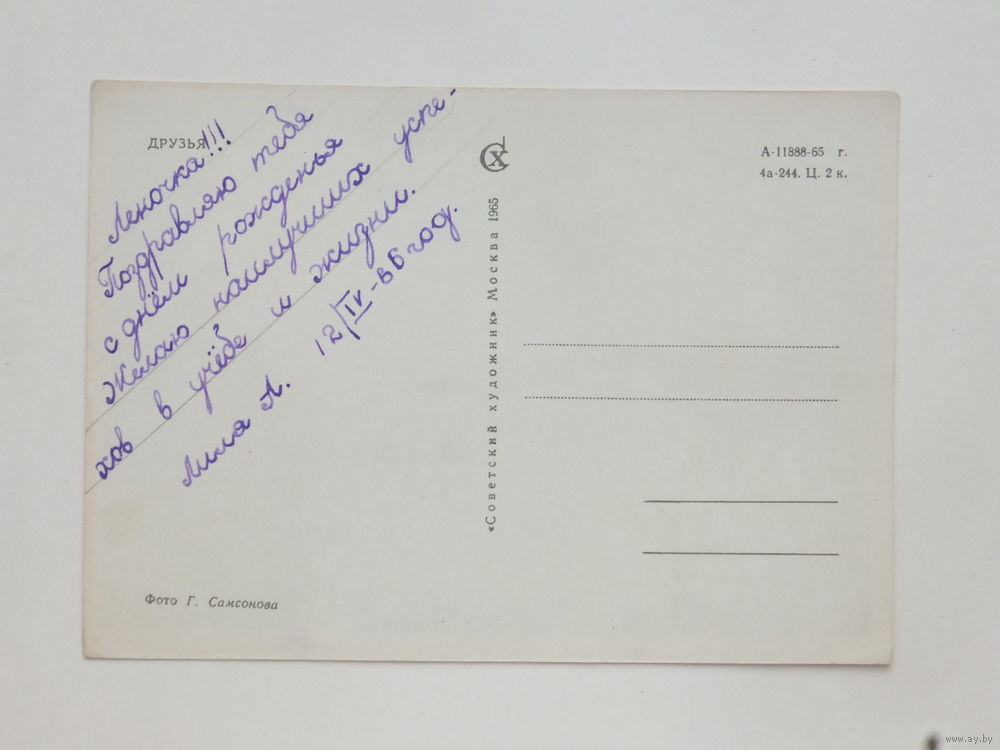 ДРУЗЬЯ
Леночка!!!
Поздравляю тебя
с днём рожденья
Желаю наилучших успе-
хов в учёбе и жизни.
Лиля А.
12/IV-66 год.
СХ
А-11888-65 г.
4а-244. Ц. 2 к.
«Советский художник» Москва 1965
Фото Г. Самсонова
www.ay.by